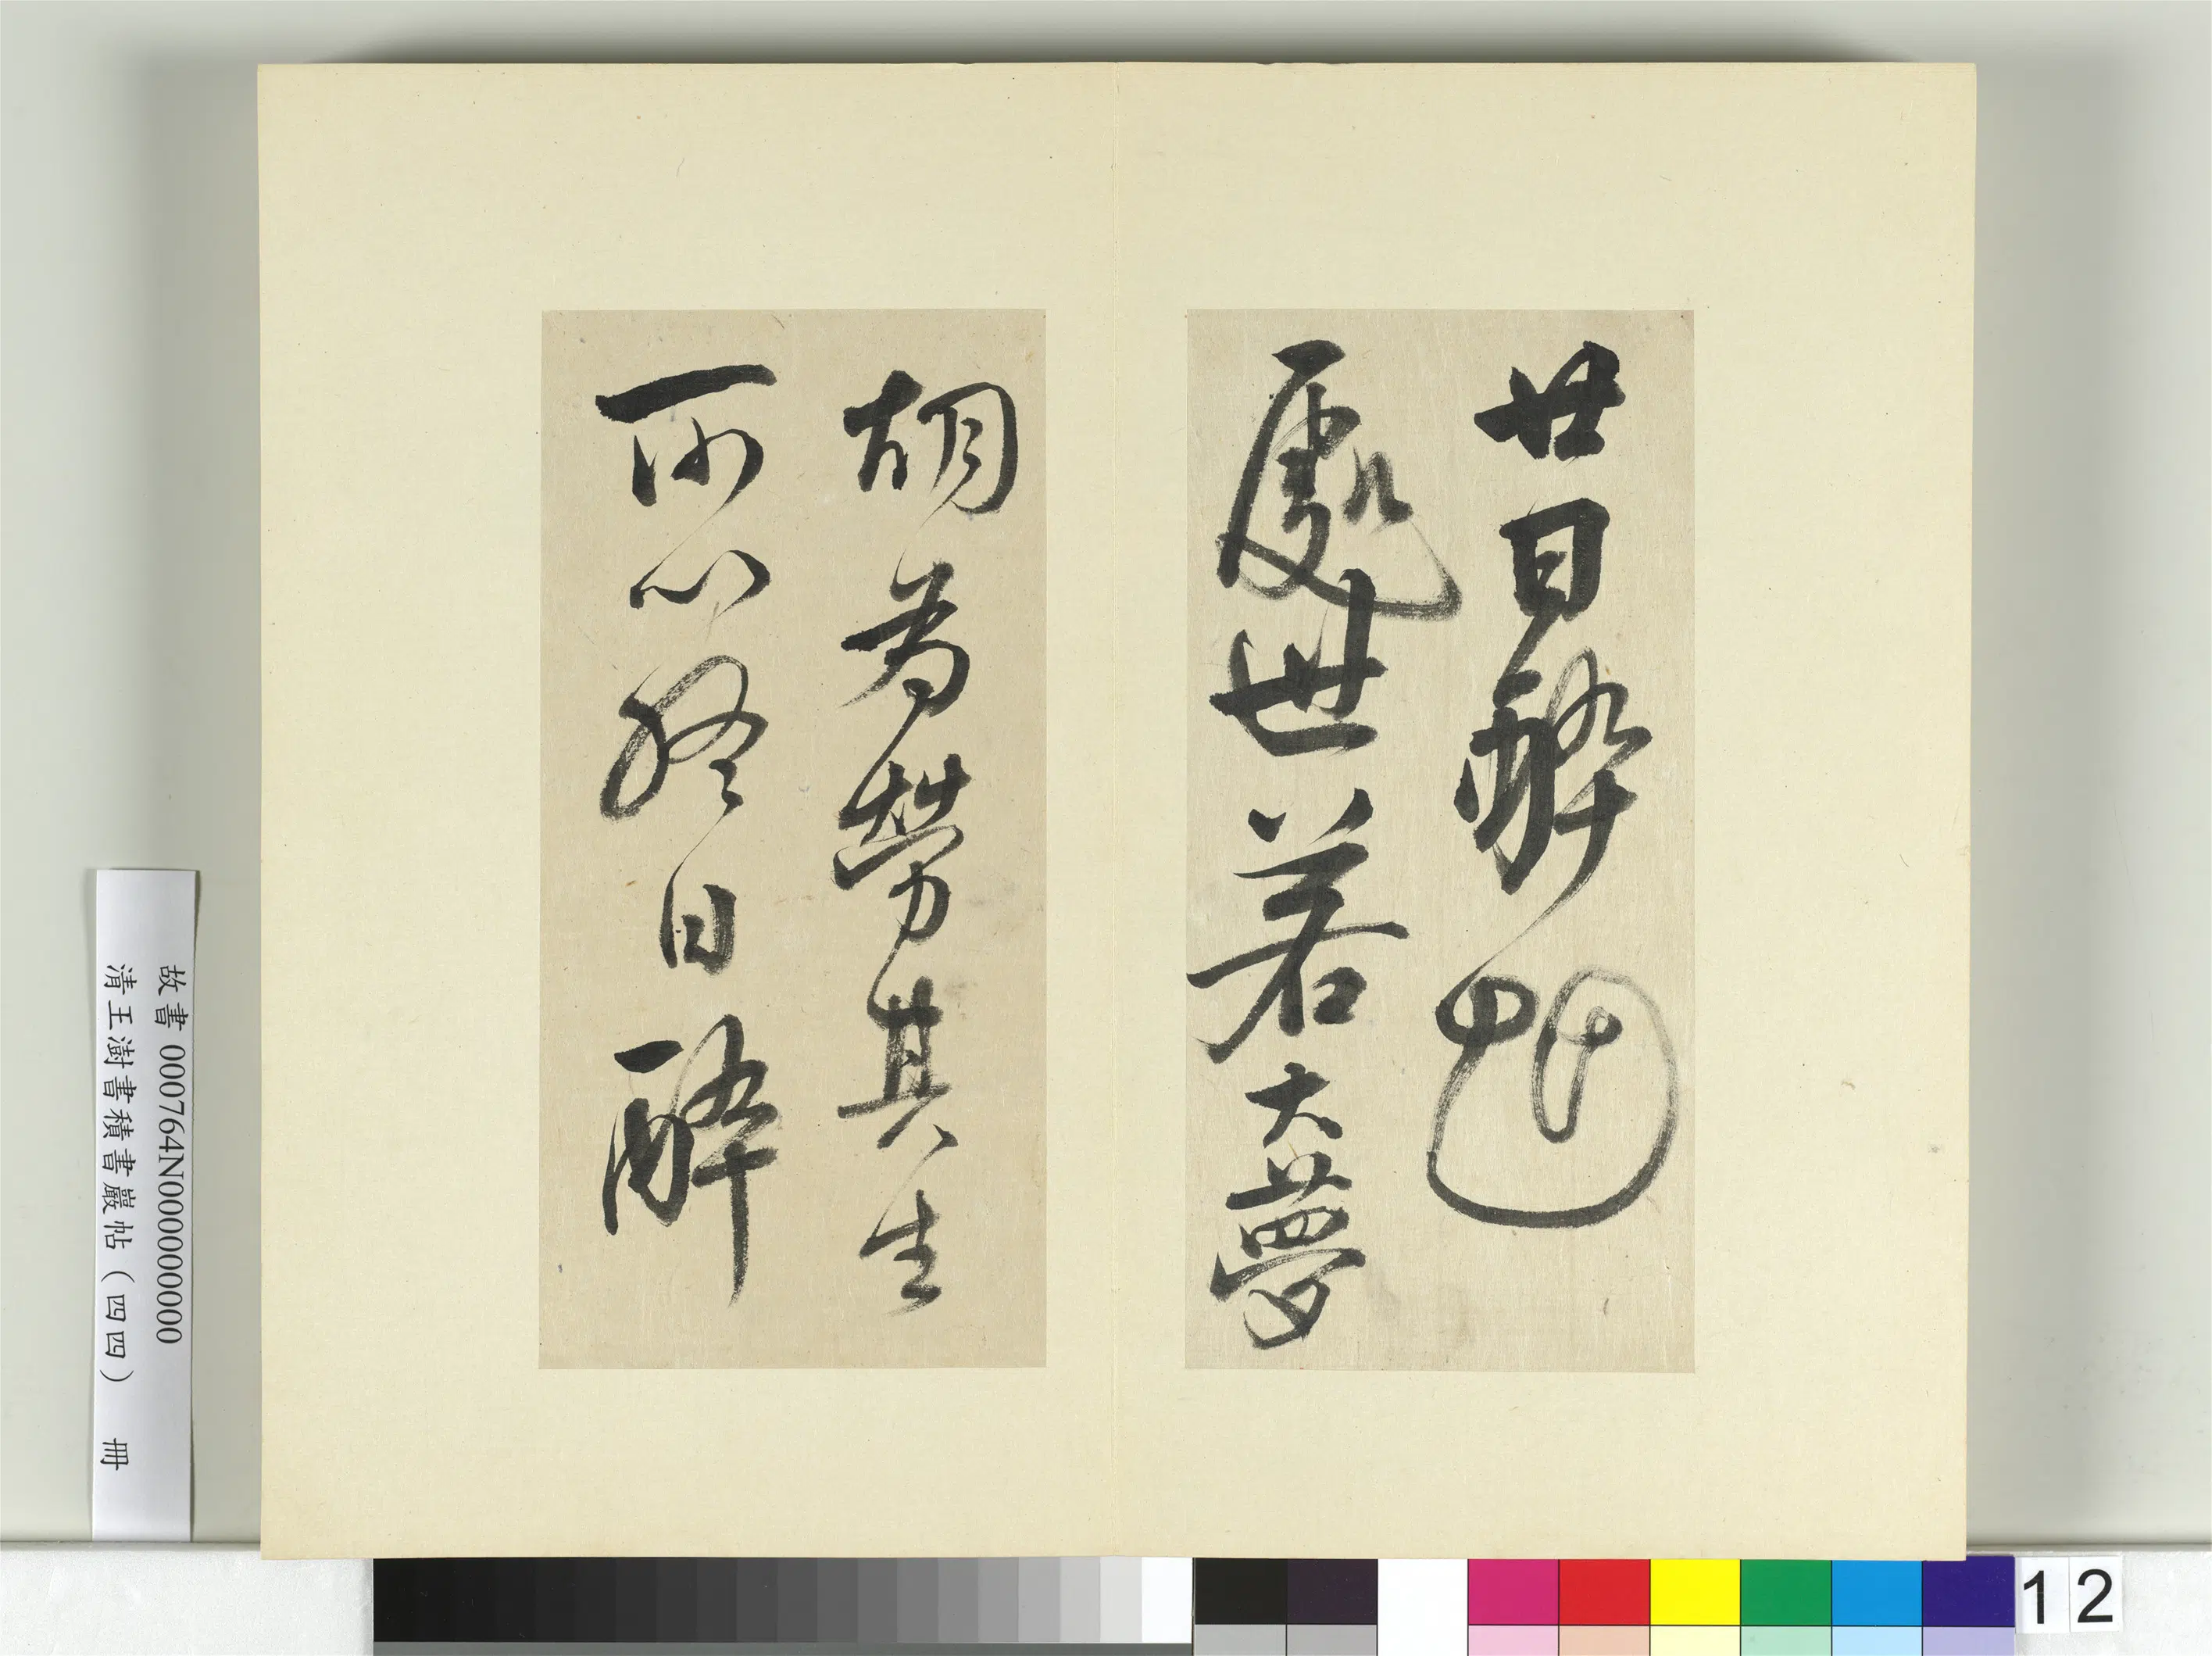 廿日醉艸
處世若大夢
胡為勞其生
所以終日醉
故書 000764N000000000
清王澍書積書巖帖（四四） 冊
12